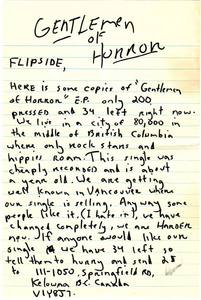 GENTLEMEN
OF
HORROR
FLIPSIDE,
HERE is some copies of "Gentlemen
of Horror" E.P. only 200
pressed and 34 left right now.
We live in a city of 80,000 in
the middle of British Columbia
where only rock stars and
hippies roam. This single was
cheaply recorded and is about
a year old. We are getting
well known in Vancouver where
our single is selling. Anyway some
people like it, (I hate it), we have
changed completely, we are HARDER
now. If anyone would like our
single we have 34 left so
tell them to hurry and send 2$
to 111-1050, Springfield RD,
Kelowna B.C. Canada